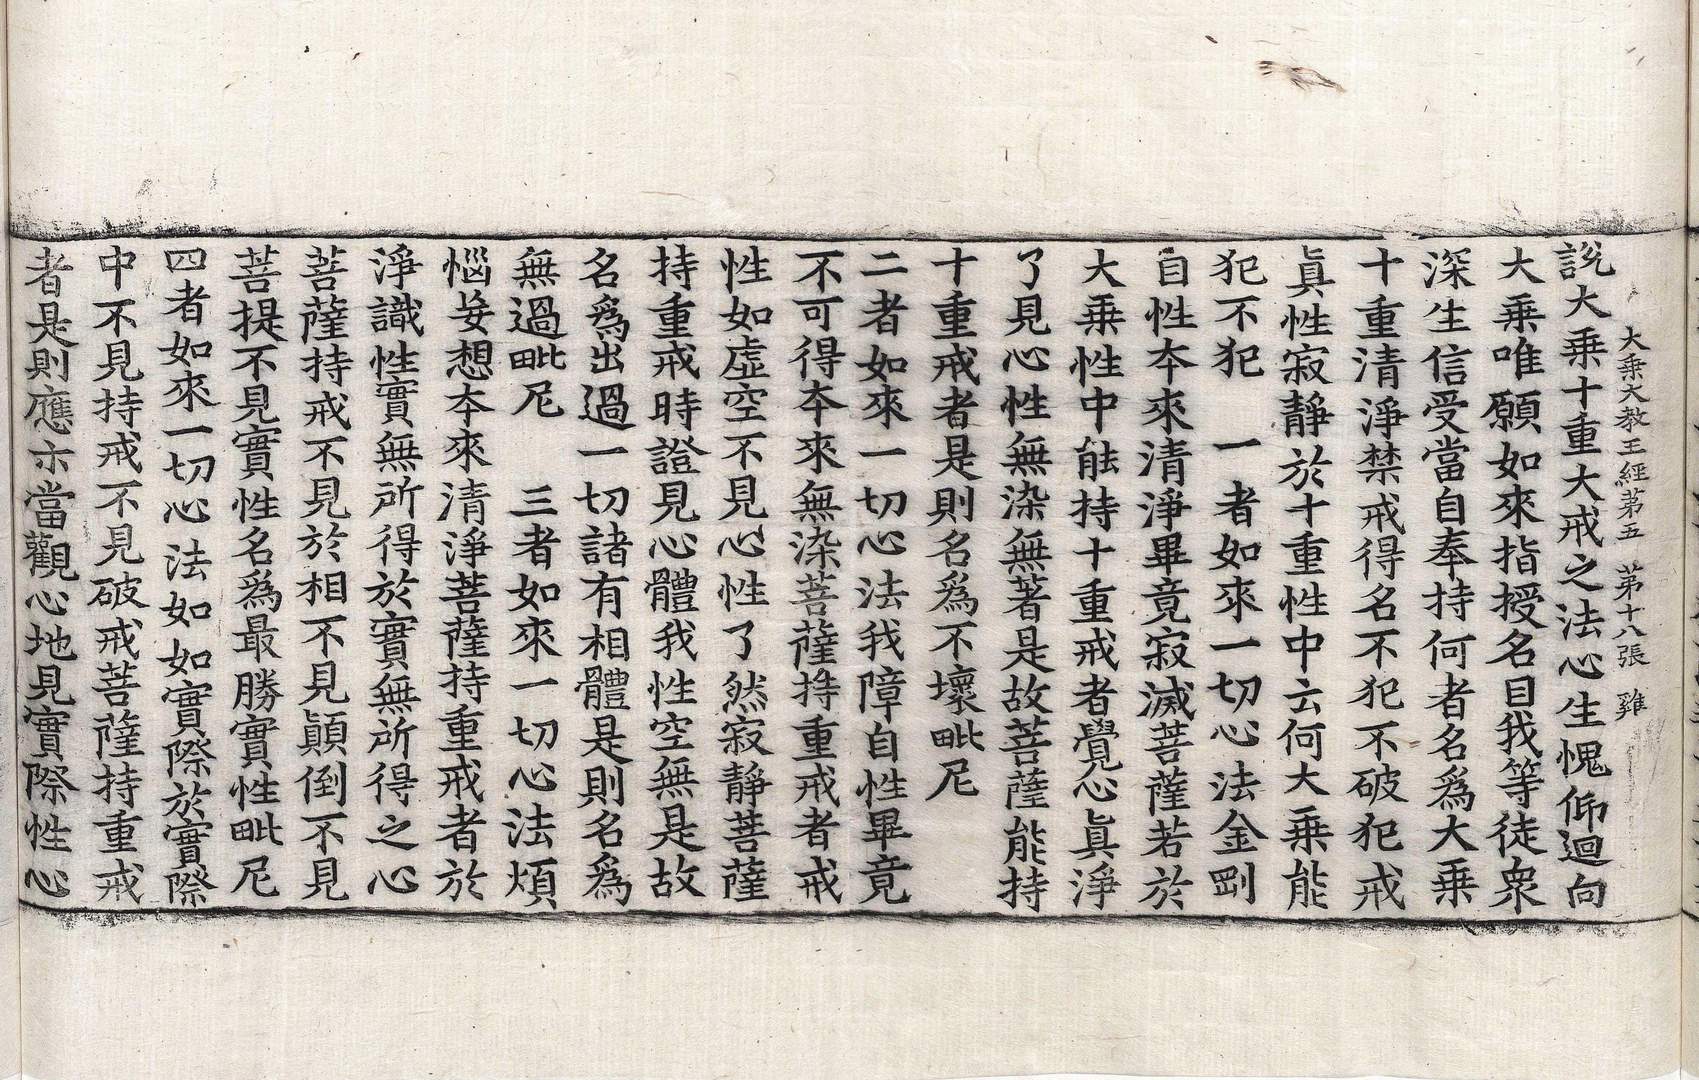 大乗大教王經苐五　苐十八張　雞
說大乗十重大戒之法心生愧仰迴向
大乗唯願如來指授名目我等徒衆
深生信受當自奉持何者名爲大乗
十重清淨禁戒得名不犯不破犯戒
眞性寂靜於十重性中云何大乗能
犯不犯　一者如來一切心法金剛
自性夲來清淨畢竟寂滅菩薩若於
大乗性中能持十重戒者覺心眞淨
了見心性無染無著是故菩薩能持
十重戒者是則名爲不壞毗尼
二者如來一切心法我障自性畢竟
不可得夲來無染菩薩持重戒者戒
性如虛空不見心性了然寂靜菩薩
持重戒時證見心體我性空無是故
名爲出過一切諸有相體是則名爲
無過毗尼　三者如來一切心法煩
惱妄想夲來清淨菩薩持重戒者於
淨識性實無所得於實無所得之心
菩薩持戒不見於相不見顚倒不見
菩提不見實性名爲最勝實性毗尼
四者如來一切心法如如實際於實際
中不見持戒不見破戒菩薩持重戒
者是則應尒當觀心地見實際性心